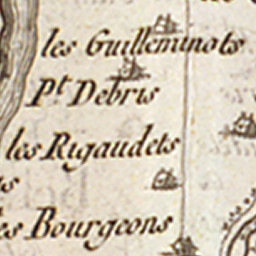 les Guilleminots
Pt Debris
les Rigaudets
es Bourgeons